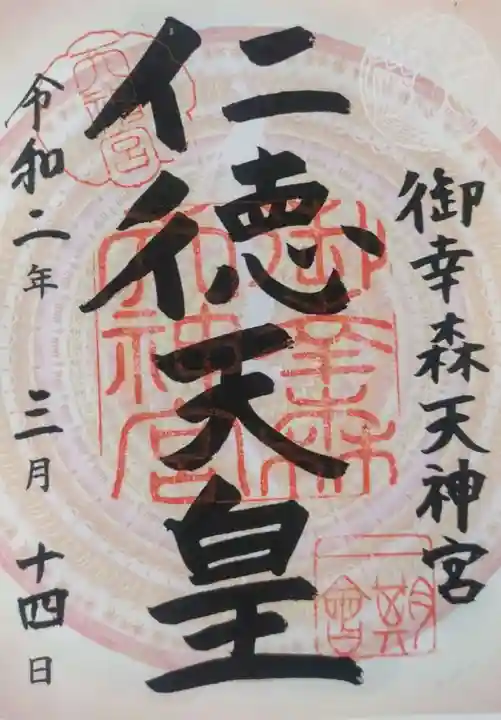 御幸森天神宮
仁徳天皇
令和二年 三月 十四日
御幸森
天神宮